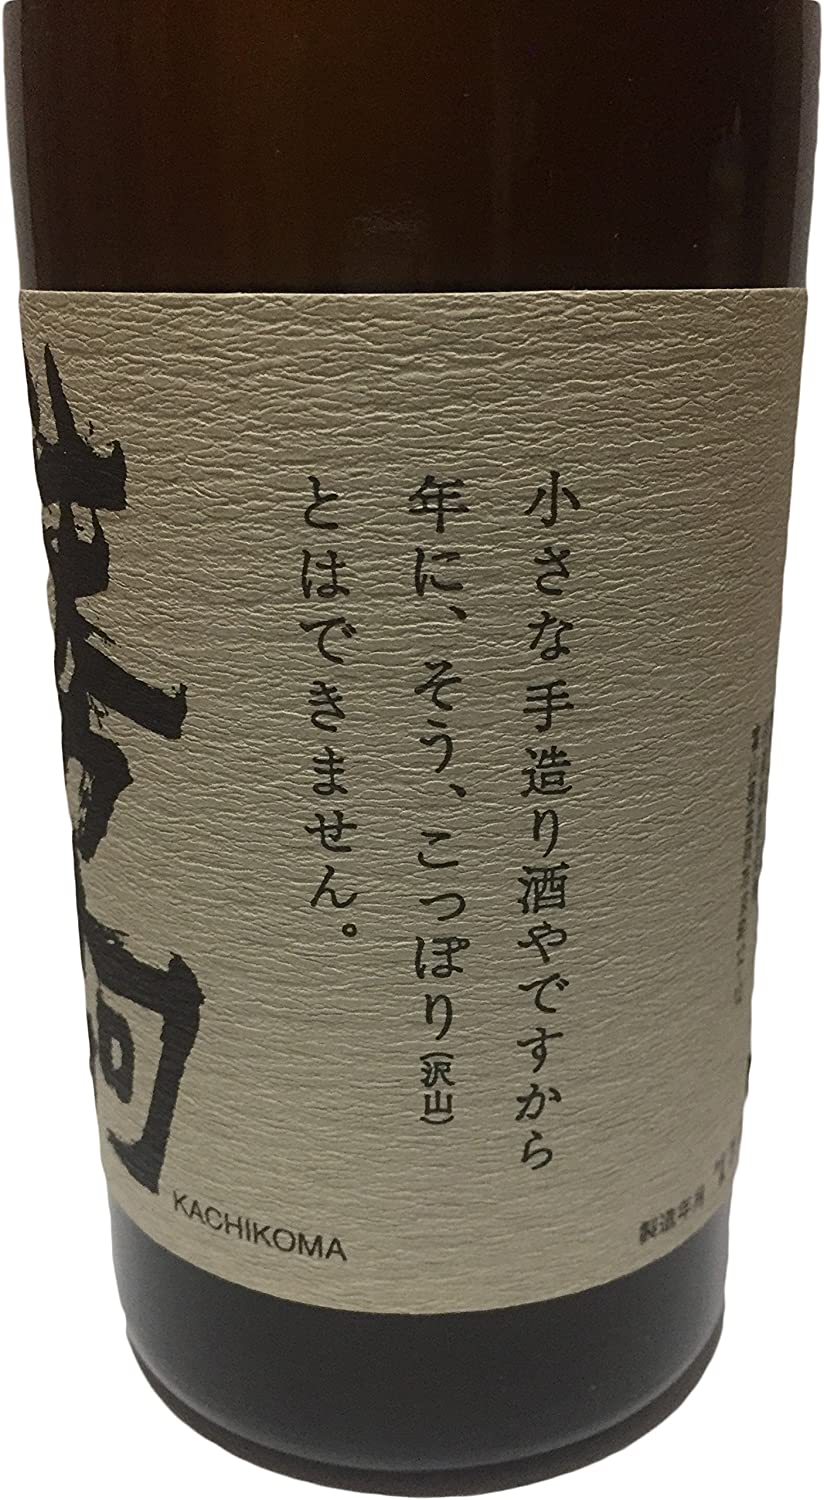 小さな手造り酒やですから
年に、そう、こっぽり(沢山)
とはできません。
駒
KACHIKOMA
製造年月